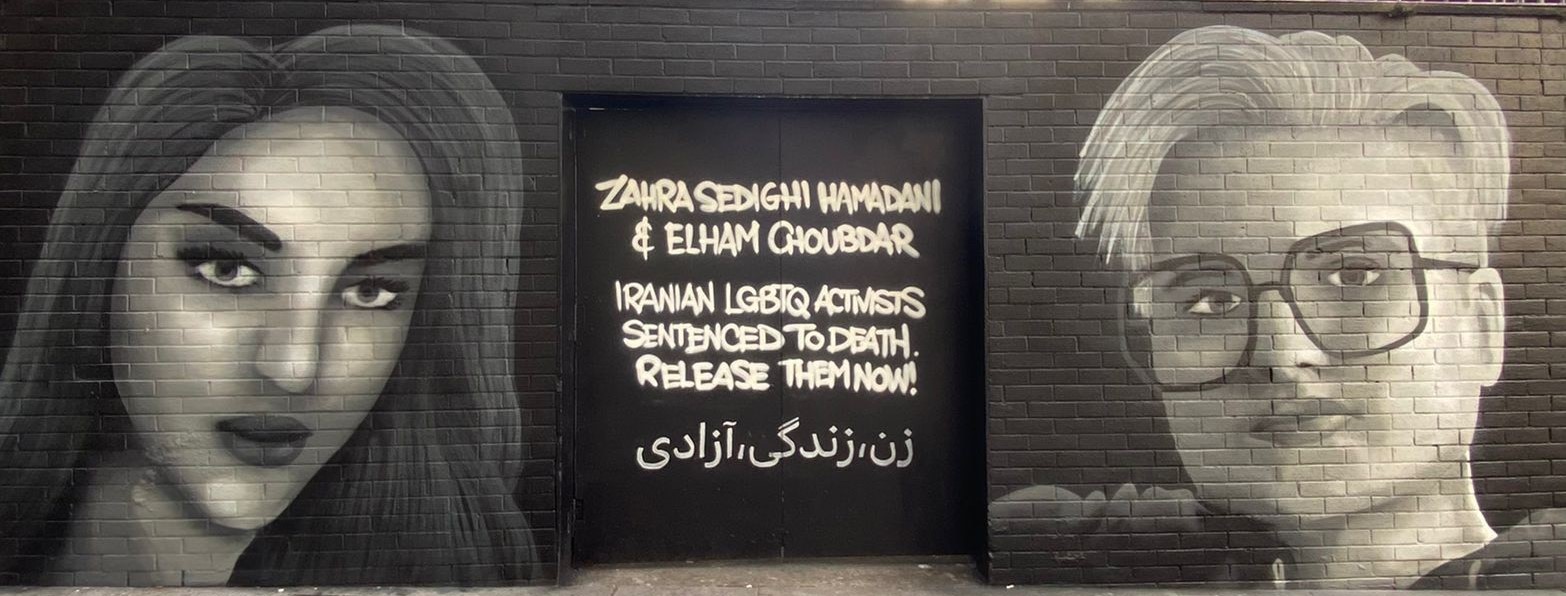 ZAHRA SEDIGHI HAMADANI
& ELHAM CHOUBDAR
IRANIAN LGBTQ ACTIVISTS
SENTENCED TO DEATH.
RELEASE THEM NOW!
زن،زندگی،آزادی